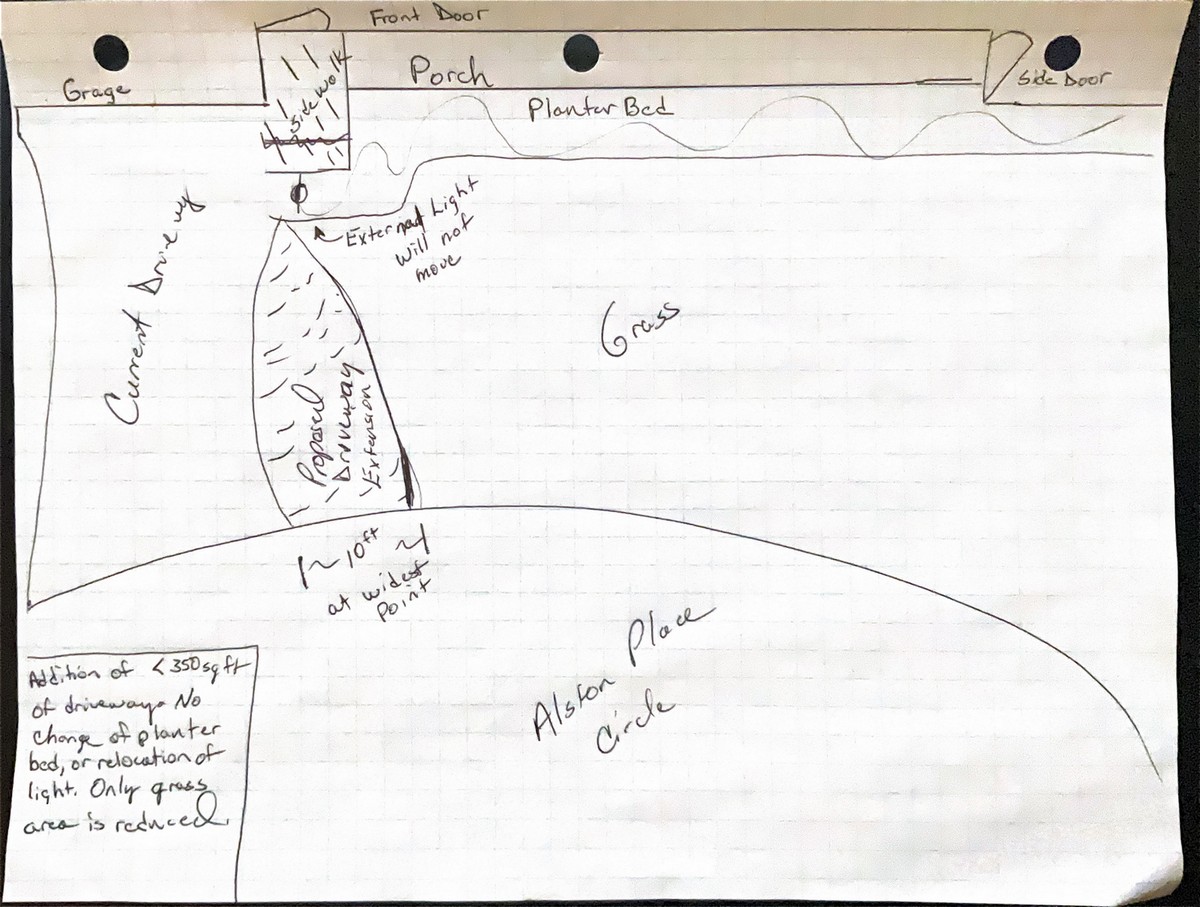 Front Door
Grage
Side walk
Porch
Side Door
Planter Bed
Current Drive wy
External Light
will not
move
Grass
Proposed
Driveway
Extension
~ 10ft ~
at widest
Point
Alston Place
Circle
Addition of <350 sq ft
of driveway. No
change of planter
bed, or relocation of
light. Only grass
area is reduced.